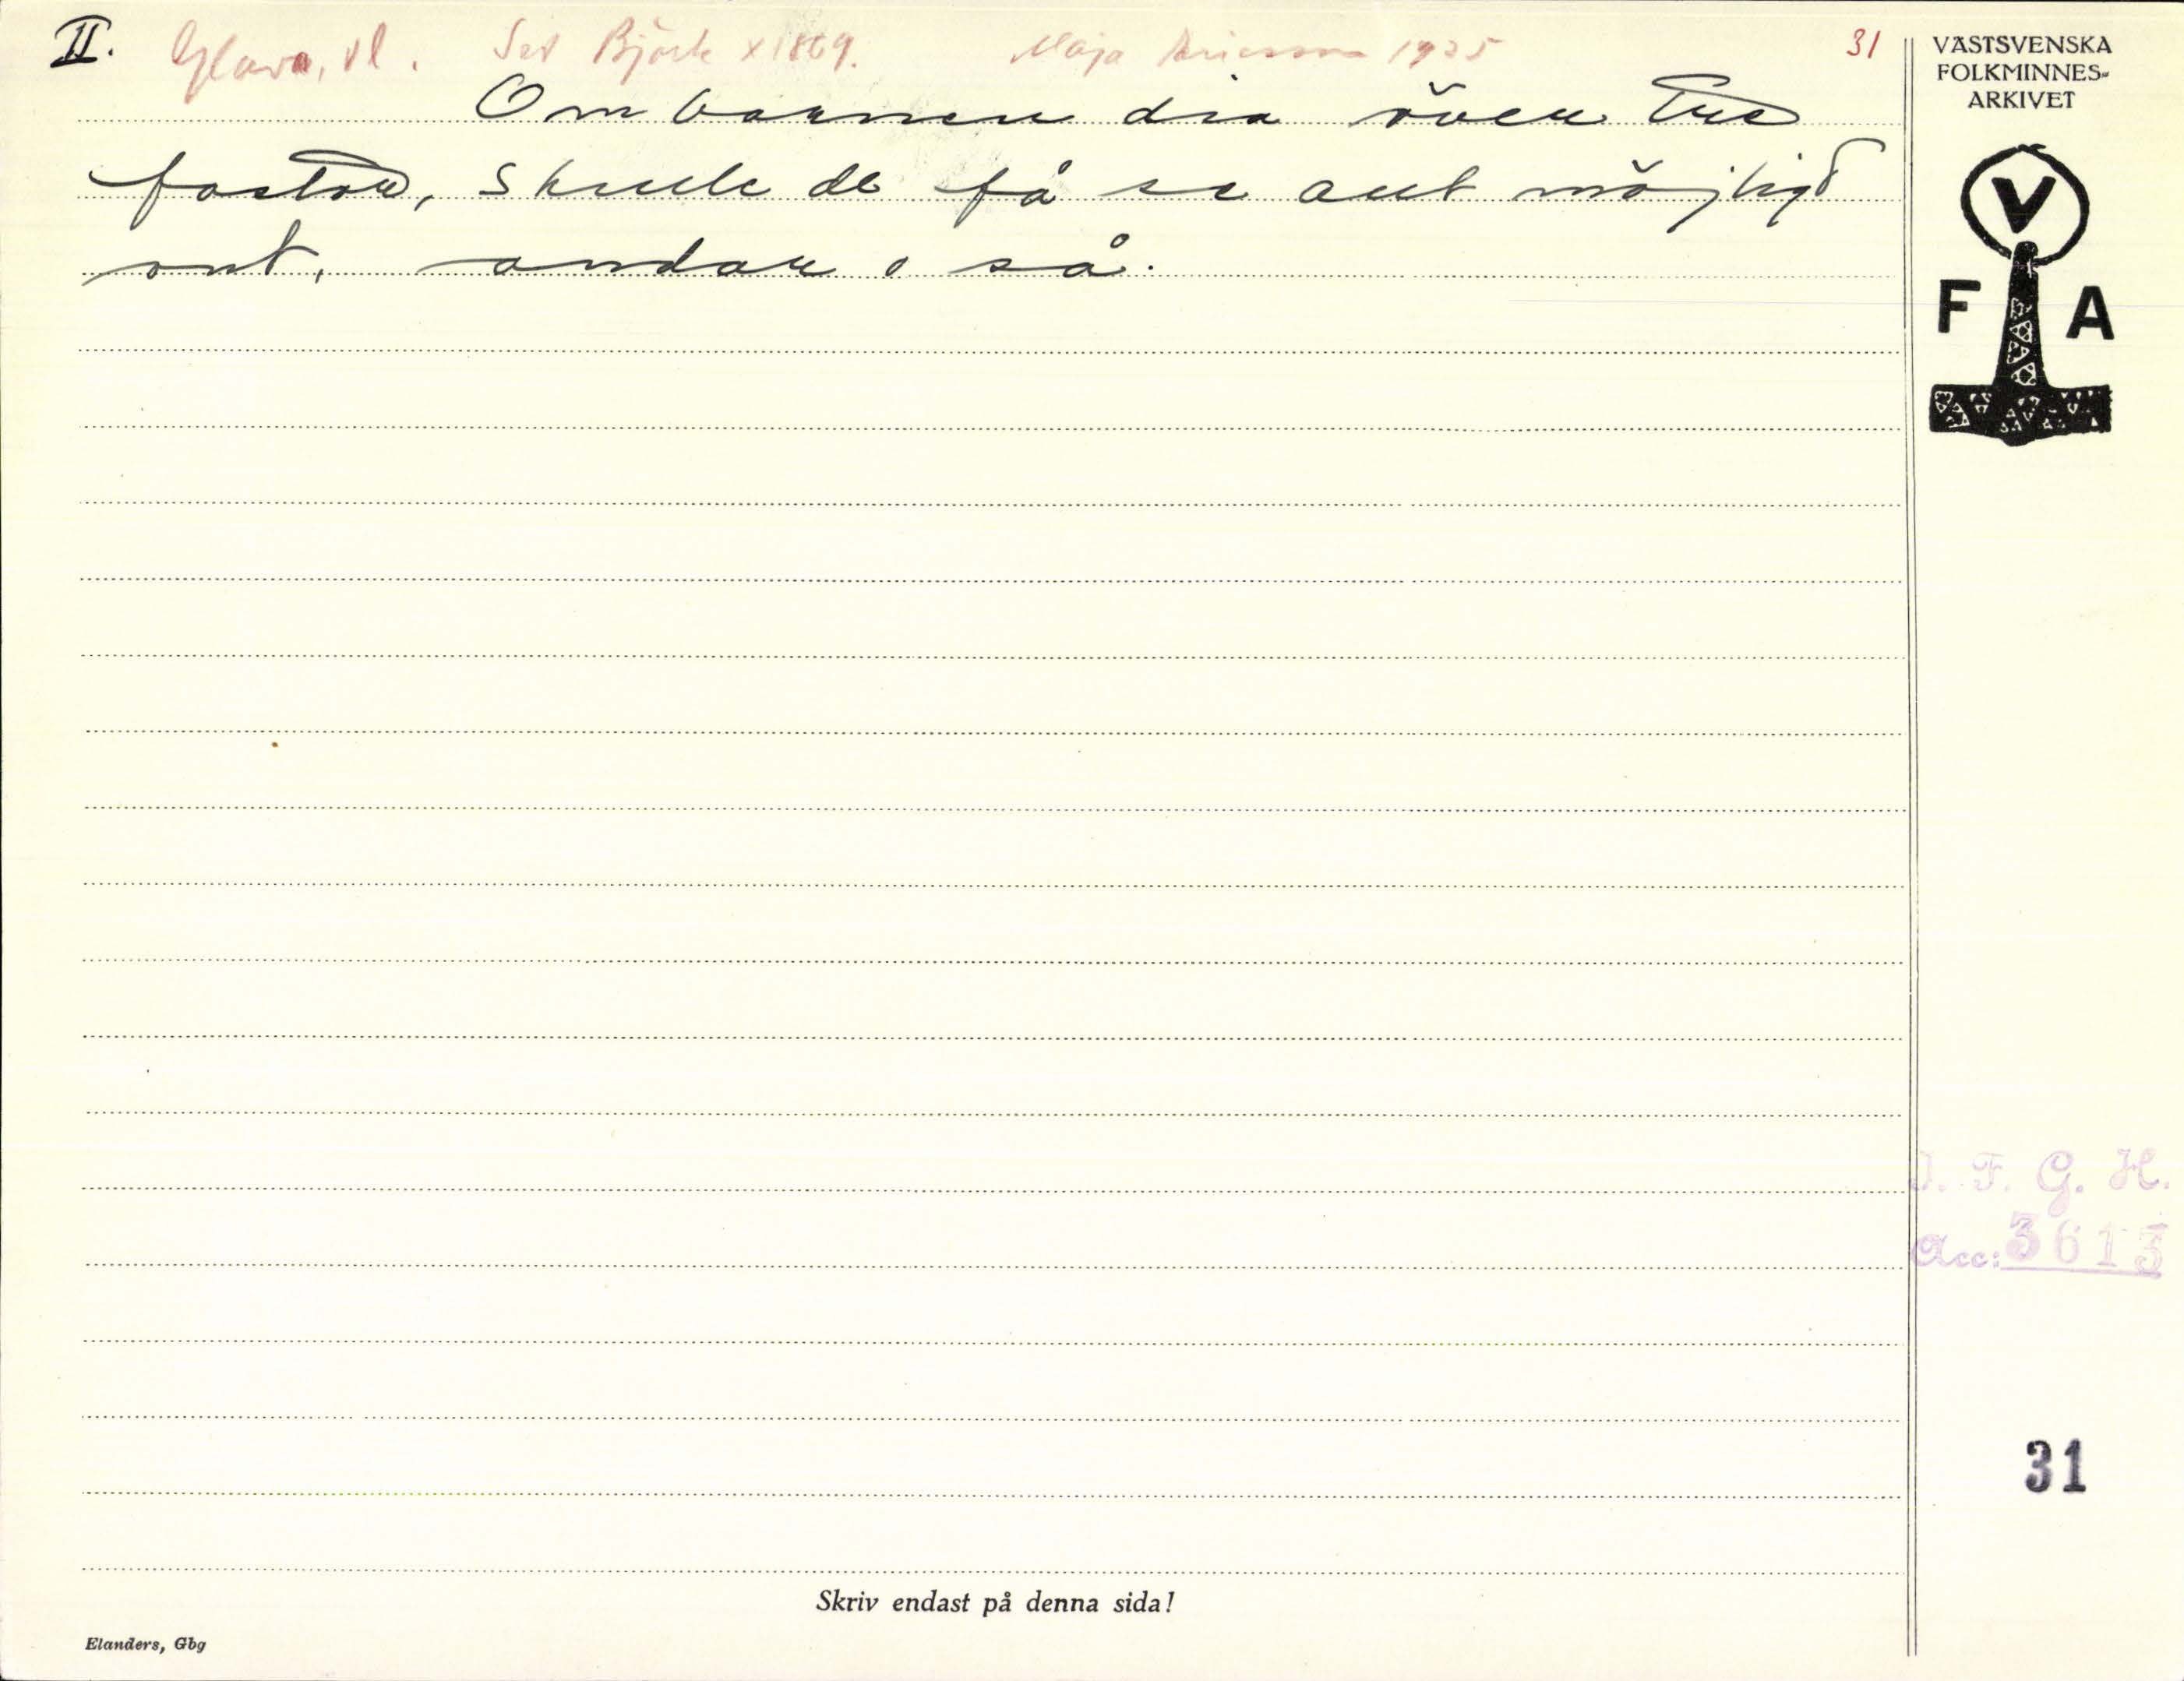 II. Glava, Vl. Set Björk x 1869. Maja Ericsson 1925 31
Om barnen dia över tre
fastor, skulle de få se allt möjligt
ont, andar o så.
VÄSTSVENSKA
FOLKMINNES-
ARKIVET
V
F A
I. F. G. H.
Acc: 3613
31
Skriv endast på denna sida!
Elanders, Gbg